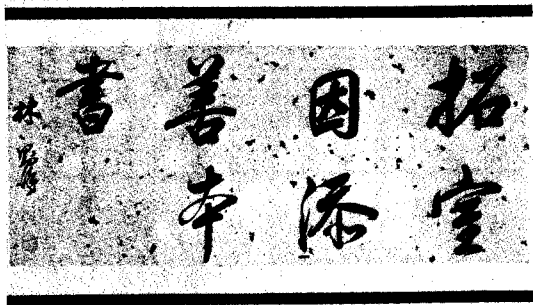 拓室
因添
善本
書
林